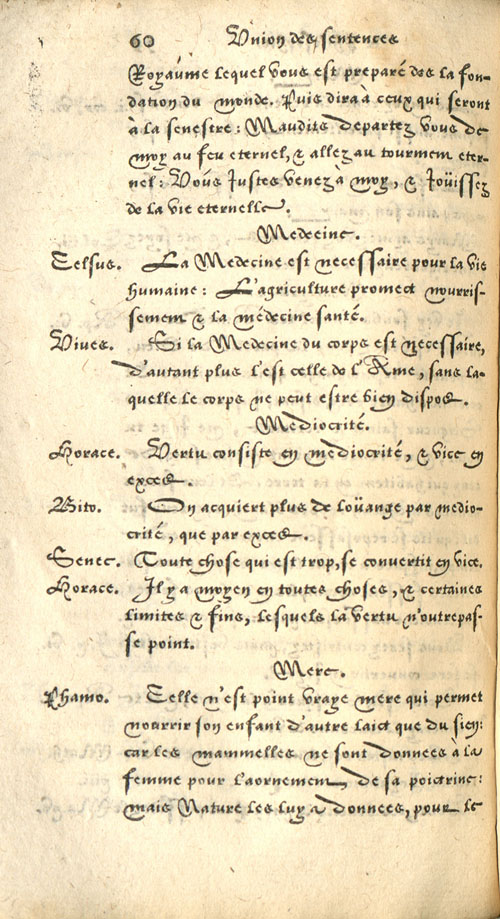 60 Vnion des sentences
Royaume lequel vous est preparé dés la fon-
dation du monde. Puis dira à ceux qui seront
à la senestre: Maudits departez vous de
moy au feu eternel, & allez au tourment eter-
nel: Vous Justes venez a moy, & Joüissez
de la vie eternelle.
Medecine.
Celsus. La Medecine est necessaire pour la vie
humaine: L'agriculture promect nourris-
sement & la medecine santé.
Vives. Si la Medecine du corps est necessaire,
d'autant plus l'est celle de l'Ame, sans la-
quelle le corps ne peut estre bien dispos.
Mediocrité.
Horace. Vertu consiste en mediocrité, & vice en
exces.
Bito. On acquiert plus de loüange par medio-
crité, que par exces.
Senec. Toute chose qui est trop, se convertit en vice.
Horace. Il y a moyen en toutes choses, & certaines
limites & fins, lesquels la vertu n'outrepas-
se point.
Mere.
Phamo. Celle n'est point vraye mere qui permet
nourrir son enfant d'autre laict que du sien:
car les mammelles ne sont données à la
femme pour l'aornement de sa poictrine:
mais Nature les luy a données, pour le